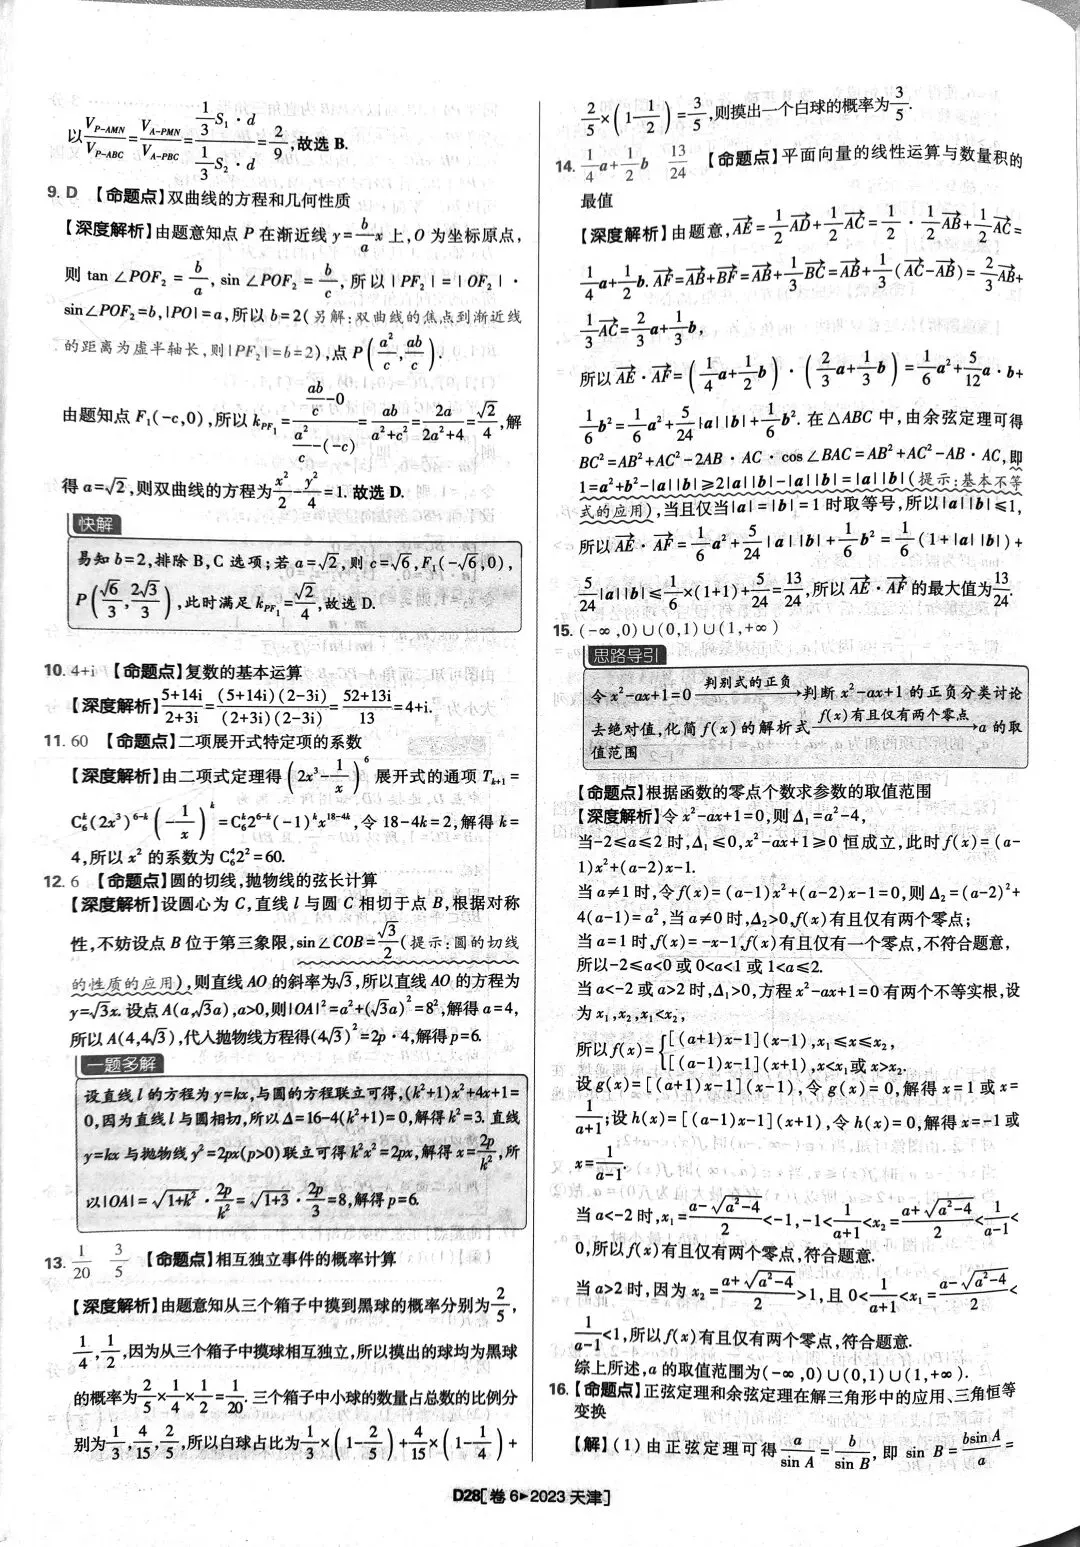 以 V_{P-AMN}/V_{P-ABC} = V_{A-PMN}/V_{A-PBC} = (1/3 S₁·d)/(1/3 S₂·d) = 2/9,故选 B.
9. D 【命题点】双曲线的方程和几何性质
【深度解析】由题意知点 P 在渐近线 y=b/a x 上,O 为坐标原点,
则 tan∠POF₂ = b/a, sin∠POF₂ = b/c, 所以|PF₂|=|OF₂|·
sin∠POF₂=b,|PO|=a,所以 b=2(另解:双曲线的焦点到渐近线
的距离为虚半轴长,则|PF₂|=b=2),点 P(a²/c, ab/c).
由题知点 F₁(-c,0),所以 k_{PF₁}=(ab/c-0)/(a²/c-(-c))=ab/(a²+c²)=2a/(2a²+4)=√2/4,解
得 a=√2,则双曲线的方程为 x²/2-y²/4=1. 故选 D.
快解
易知 b=2,排除 B,C 选项;若 a=√2,则 c=√6,F₁(-√6,0),
P(√6/3, 2√3/3),此时满足 k_{PF₁}=√2/4,故选 D.
10. 4+i 【命题点】复数的基本运算
【深度解析】(5+14i)/(2+3i)=(5+14i)(2-3i)/((2+3i)(2-3i))=(52+13i)/13=4+i.
11. 60 【命题点】二项展开式特定项的系数
【深度解析】由二项式定理得(2x³-1/x)⁶展开式的通项 T_{k+1}=
C₆ᵏ(2x³)^{6-k}(-1/x)^k=C₆ᵏ2^{6-k}(-1)^k x^{18-4k},令 18-4k=2,解得 k=
4,所以 x² 的系数为 C₆⁴2²=60.
12. 6 【命题点】圆的切线,抛物线的弦长计算
【深度解析】设圆心为 C,直线 l 与圆 C 相切于点 B,根据对称
性,不妨设点 B 位于第三象限,sin∠COB=√3/2(提示:圆的切线
的性质的应用),则直线 AO 的斜率为√3,所以直线 AO 的方程为
y=√3x. 设点 A(a,√3a),a>0,则|OA|²=a²+(√3a)²=8²,解得 a=4,
所以 A(4,4√3),代入抛物线方程得(4√3)²=2p·4,解得 p=6.
一题多解
设直线 l 的方程为 y=kx,与圆的方程联立可得,(k²+1)x²+4x+1=
0,因为直线 l 与圆相切,所以 Δ=16-4(k²+1)=0,解得 k²=3. 直线
y=kx 与抛物线 y²=2px(p>0)联立可得 k²x²=2px,解得 x=2p/k²,所
以|OA|=√(1+k²)·2p/k²=√(1+3)·2p/3=8,解得 p=6.
13. 1/20 3/5 【命题点】相互独立事件的概率计算
【深度解析】由题意知从三个箱子中摸到黑球的概率分别为 2/5,
1/4,1/2,因为从三个箱子中摸球相互独立,所以摸出的球均为黑球
的概率为 2/5×1/4×1/2=1/20. 三个箱子中小球的数量占总数的比例分
别为 1/3,4/15,2/5,所以白球占比为 1/3×(1-2/5)+4/15×(1-1/4)+
2/5×(1-1/2)=3/5,则摸出一个白球的概率为 3/5.
14. 1/4 a+1/2 b 13/24 【命题点】平面向量的线性运算与数量积的
最值
【深度解析】由题意,AE→=1/2 AD→+1/2 AC→=1/2·1/2 AB→+1/2 AC→=
1/4 a+1/2 b. AF→=AB→+BF→=AB→+1/3 BC→=AB→+1/3(AC→-AB→)=2/3 AB→+
1/3 AC→=2/3 a+1/3 b,
所以 AE→·AF→=(1/4 a+1/2 b)·(2/3 a+1/3 b)=1/6 a²+5/12 a·b+
1/6 b²=1/6 a²+5/24|a||b|+1/6 b². 在△ABC 中,由余弦定理可得
BC²=AB²+AC²-2AB·AC·cos∠BAC=AB²+AC²-AB·AC,即
1=a²+b²-|a||b|≥2|a||b|-|a||b|=|a||b|(提示:基本不等
式的应用),当且仅当|a|=|b|=1 时取等号,所以|a||b|≤1,
所以 AE→·AF→=1/6 a²+5/24|a||b|+1/6 b²=1/6(1+|a||b|)+
5/24|a||b|≤1/6×(1+1)+5/24=13/24,所以 AE→·AF→ 的最大值为 13/24.
15. (-∞,0)∪(0,1)∪(1,+∞)
思路导引
令 x²-ax+1=0 —判别式的正负→ 判断 x²-ax+1 的正负分类讨论
去绝对值,化简 f(x) 的解析式 —f(x)有且仅有两个零点→ a 的取
值范围
【命题点】根据函数的零点个数求参数的取值范围
【深度解析】令 x²-ax+1=0,则 Δ₁=a²-4,
当-2≤a≤2 时,Δ₁≤0,x²-ax+1≥0 恒成立,此时 f(x)=(a-
1)x²+(a-2)x-1.
当 a≠1 时,令 f(x)=(a-1)x²+(a-2)x-1=0,则 Δ₂=(a-2)²+
4(a-1)=a²,当 a≠0 时,Δ₂>0,f(x)有且仅有两个零点;
当 a=1 时,f(x)=-x-1,f(x)有且仅有一个零点,不符合题意,
所以-2≤a<0 或 0<a<1 或 1<a≤2.
当 a<-2 或 a>2 时,Δ₁>0,方程 x²-ax+1=0 有两个不等实根,设
为 x₁,x₂,x₁<x₂,
所以 f(x)={[(a+1)x-1](x-1),x₁≤x≤x₂,
[(a-1)x-1](x+1),x<x₁或 x>x₂.
设 g(x)=[(a+1)x-1](x-1),令 g(x)=0,解得 x=1 或 x=
1/(a+1);设 h(x)=[(a-1)x-1](x+1),令 h(x)=0,解得 x=-1 或
x=1/(a-1).
当 a<-2 时,x₁=(a-√(a²-4))/2<-1,-1<1/(a+1)<x₂=(a+√(a²-4))/2<1/(a-1)<
0,所以 f(x)有且仅有两个零点,符合题意.
当 a>2 时,因为 x₂=(a+√(a²-4))/2>1,且 0<1/(a+1)<x₁=(a-√(a²-4))/2<
1/(a-1)<1,所以 f(x)有且仅有两个零点,符合题意.
综上所述,a 的取值范围为(-∞,0)∪(0,1)∪(1,+∞).
16. 【命题点】正弦定理和余弦定理在解三角形中的应用、三角恒等
变换
【解】(1)由正弦定理可得 a/sin A=b/sin B,即 sin B=bsin A/a=
D28[卷 6▸2023 天津]